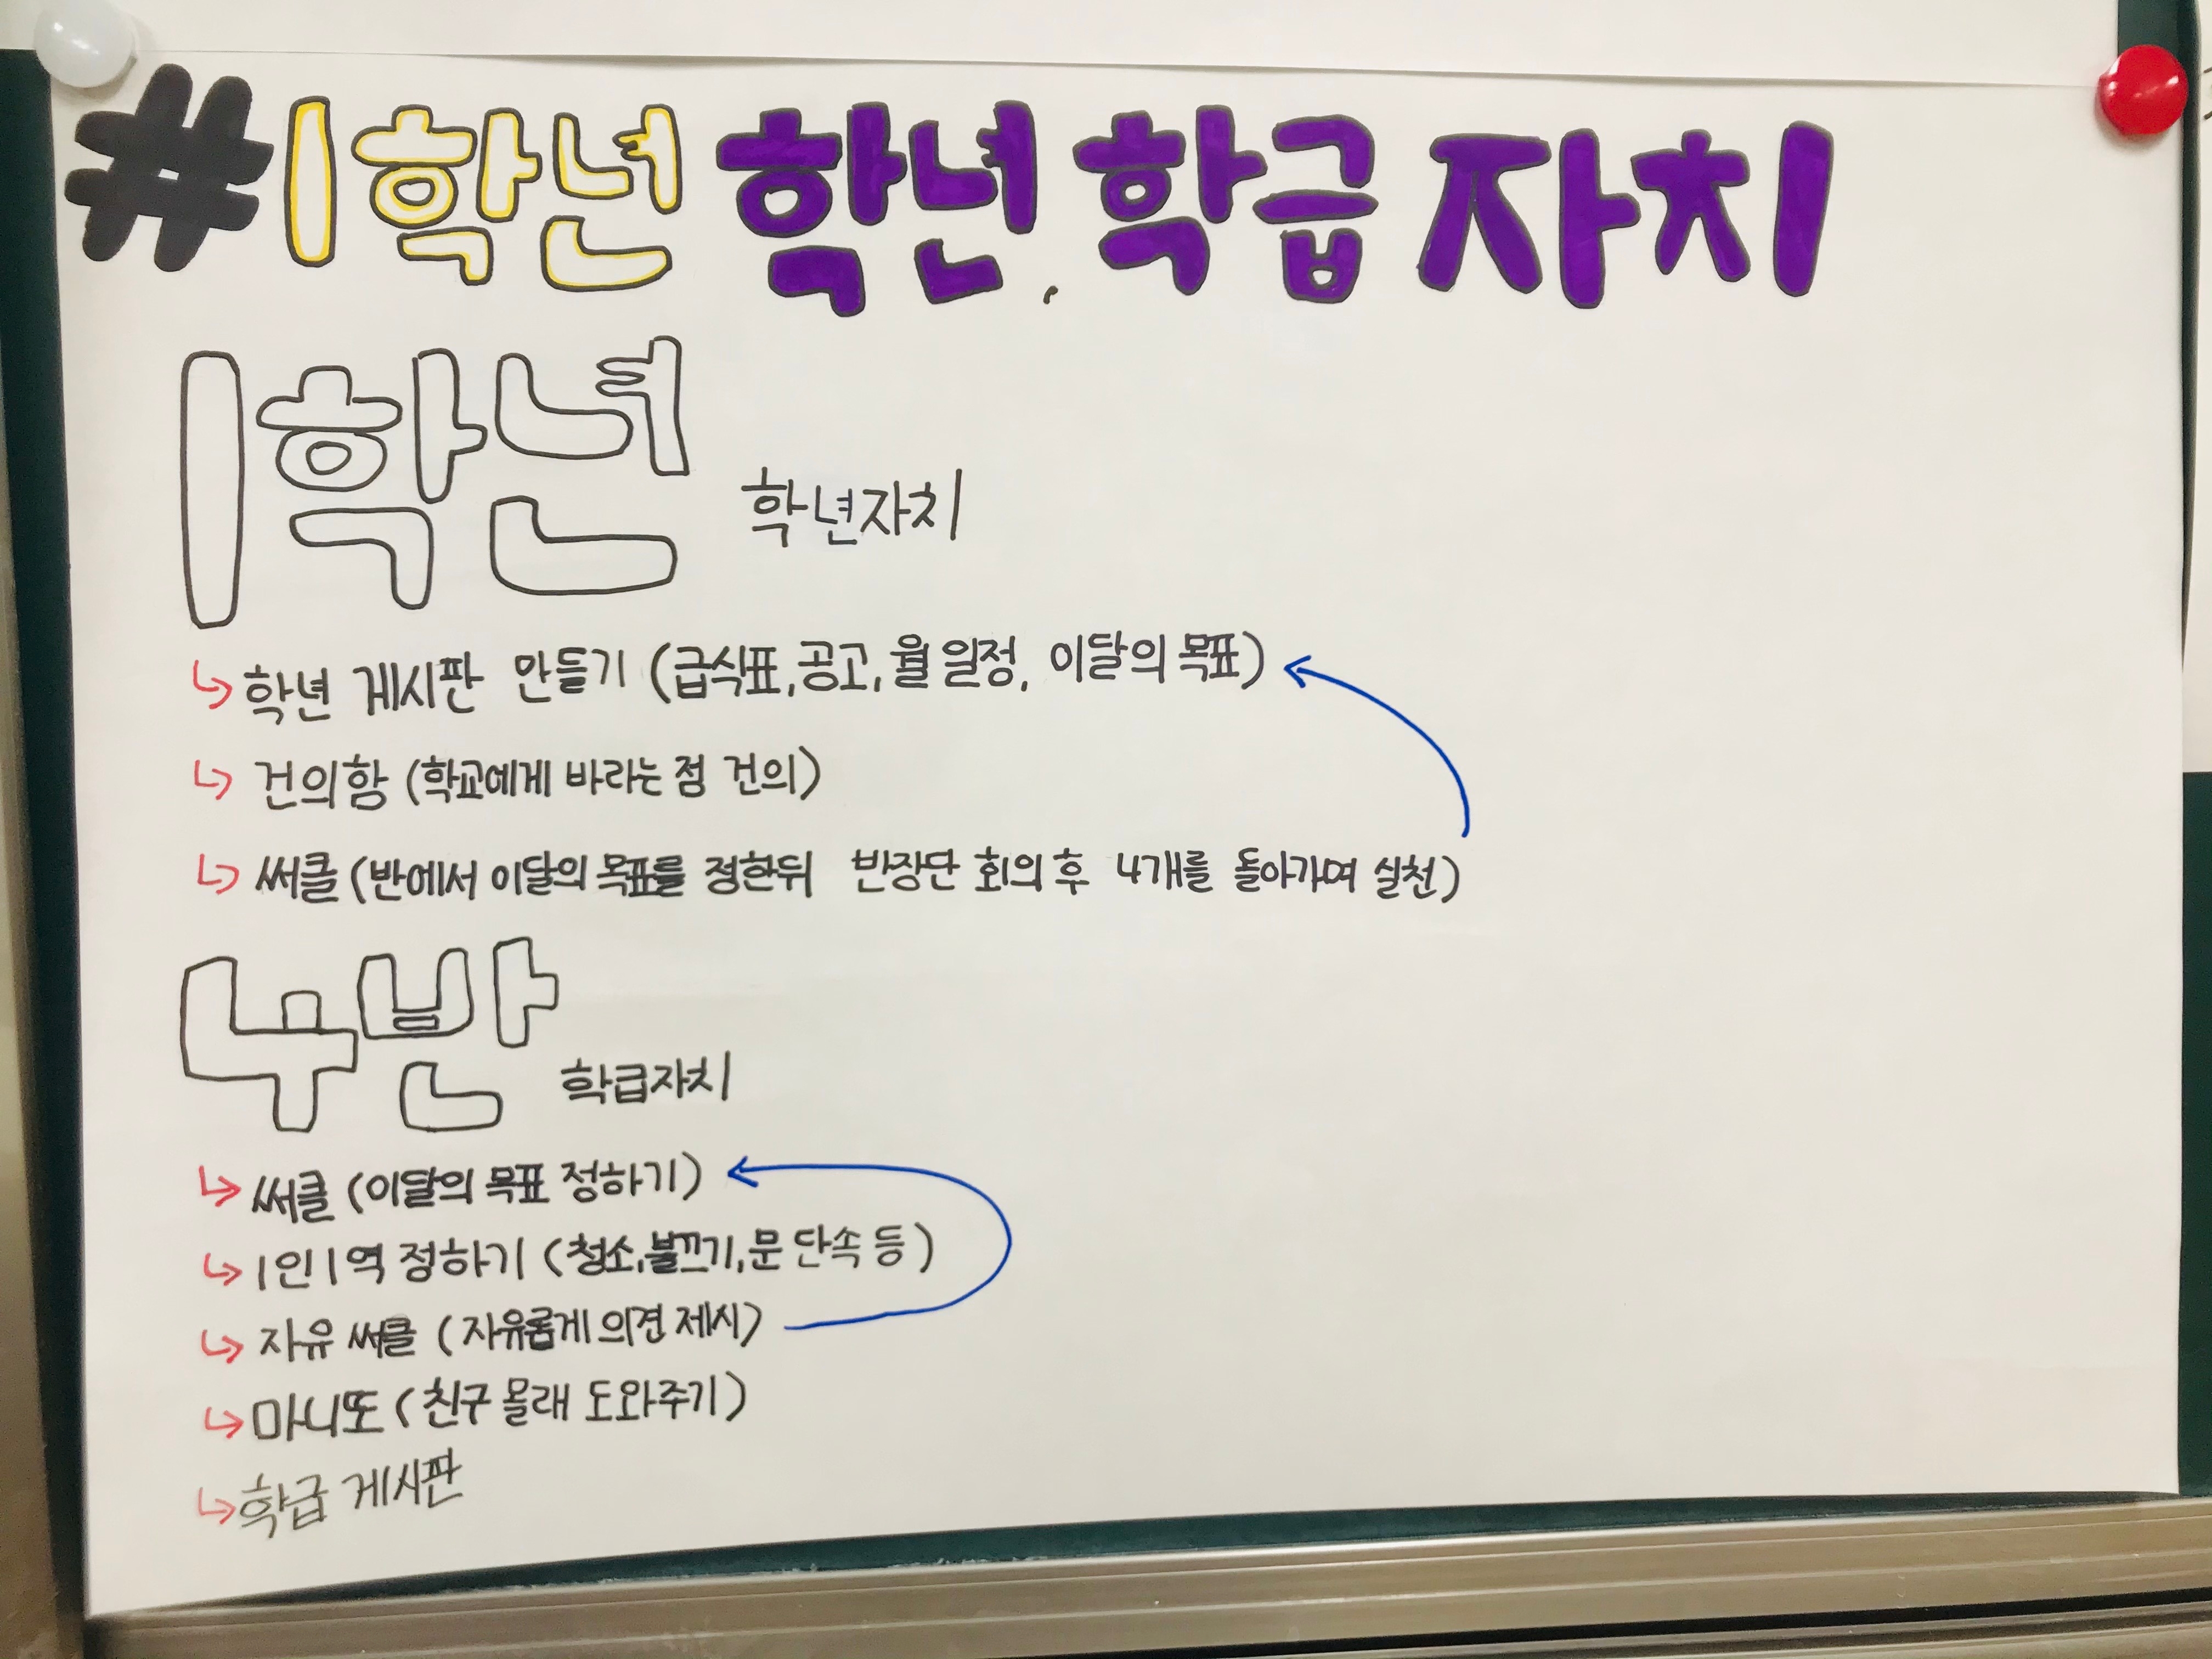 #1학년 학년, 학급 자치
1학년 학년자치
↳ 학년 게시판 만들기 (급식표, 공고, 월 일정, 이달의 목표)
↳ 건의함 (학교에게 바라는 점 건의)
↳ 써클 (반에서 이달의 목표를 정한뒤 반장단 회의 후 4개를 돌아가며 실천)
4반 학급자치
↳ 써클 (이달의 목표 정하기)
↳ 1인 1역 정하기 (청소, 불끄기, 문 단속 등)
↳ 자유 써클 (자유롭게 의견 제시)
↳ 마니또 (친구 몰래 도와주기)
↳ 학급 게시판